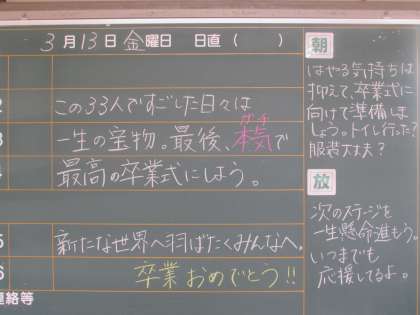 3月13日金曜日 日直( )
2
この33人ですごした日々は
3
ガチ
一生の宝物。最後、本気で
4
最高の卒業式にしよう。
5
新たな世界へ羽ばたくみんなへ。
6
卒業おめでとう!!
連絡等
朝
はやる気持ちは
抑えて、卒業式に
向けて準備しま
しょう。トイレ行った?
服装大丈夫?
放
次のステージを
一生懸命進もう。
いつまでも
応援してるよ。